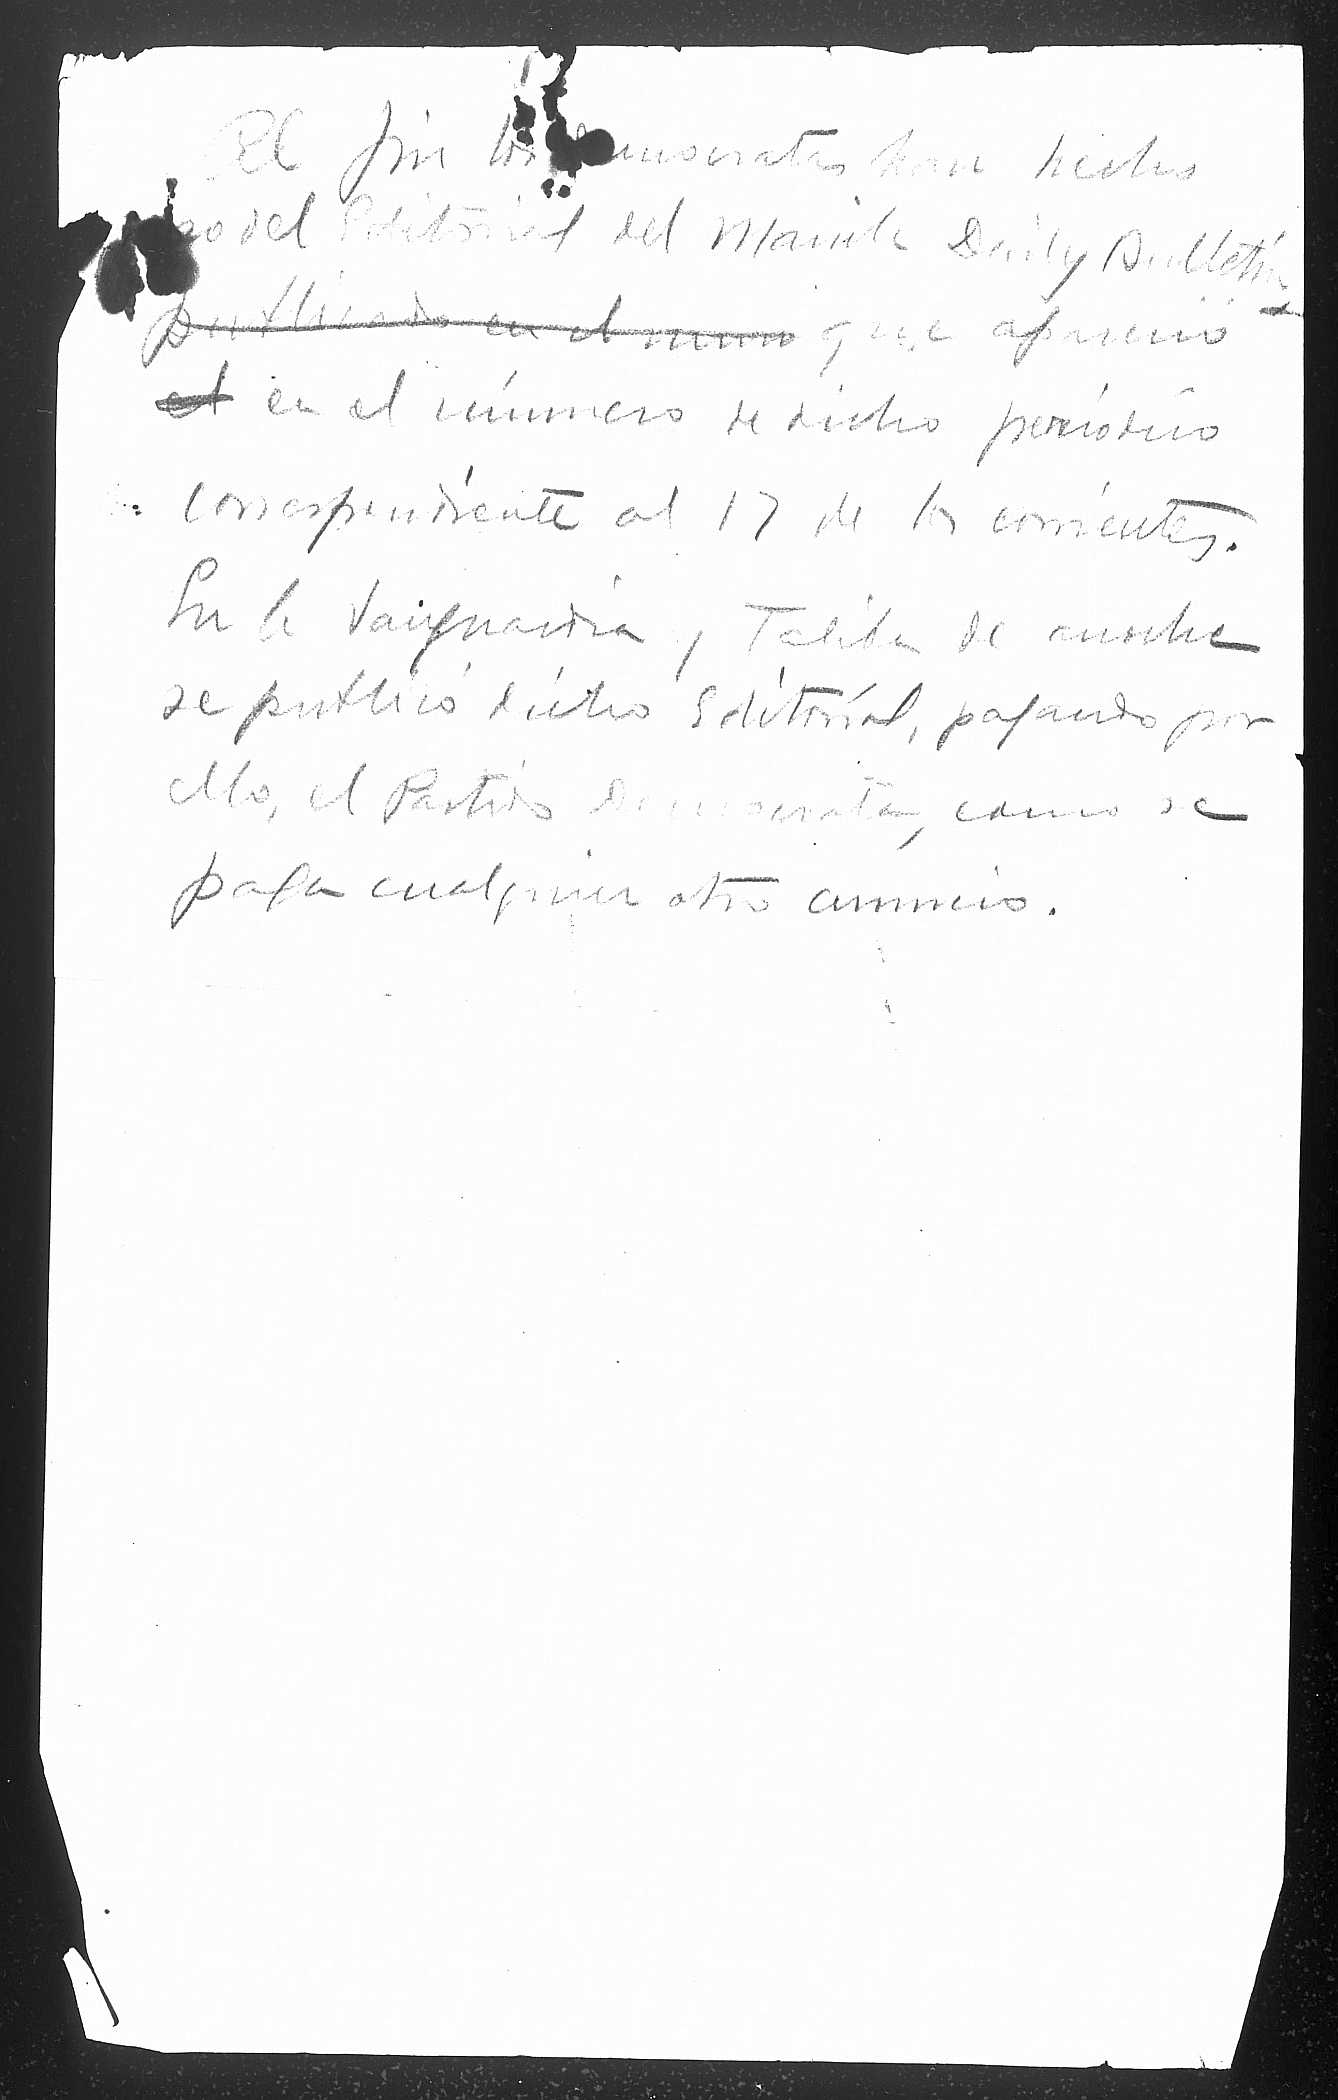 Al fin los demócratas han hecho
uso del Editorial del Manila Daily Bulletin
publicado en el num que apareció
el en el número de dicho periódico
correspondiente al 17 de los corrientes.
En la Vanguardia y Taliba de anoche
se publicó dicho Editorial, pagando por
ello, el Partido Demócrata, como se
paga cualquier otro anuncio.